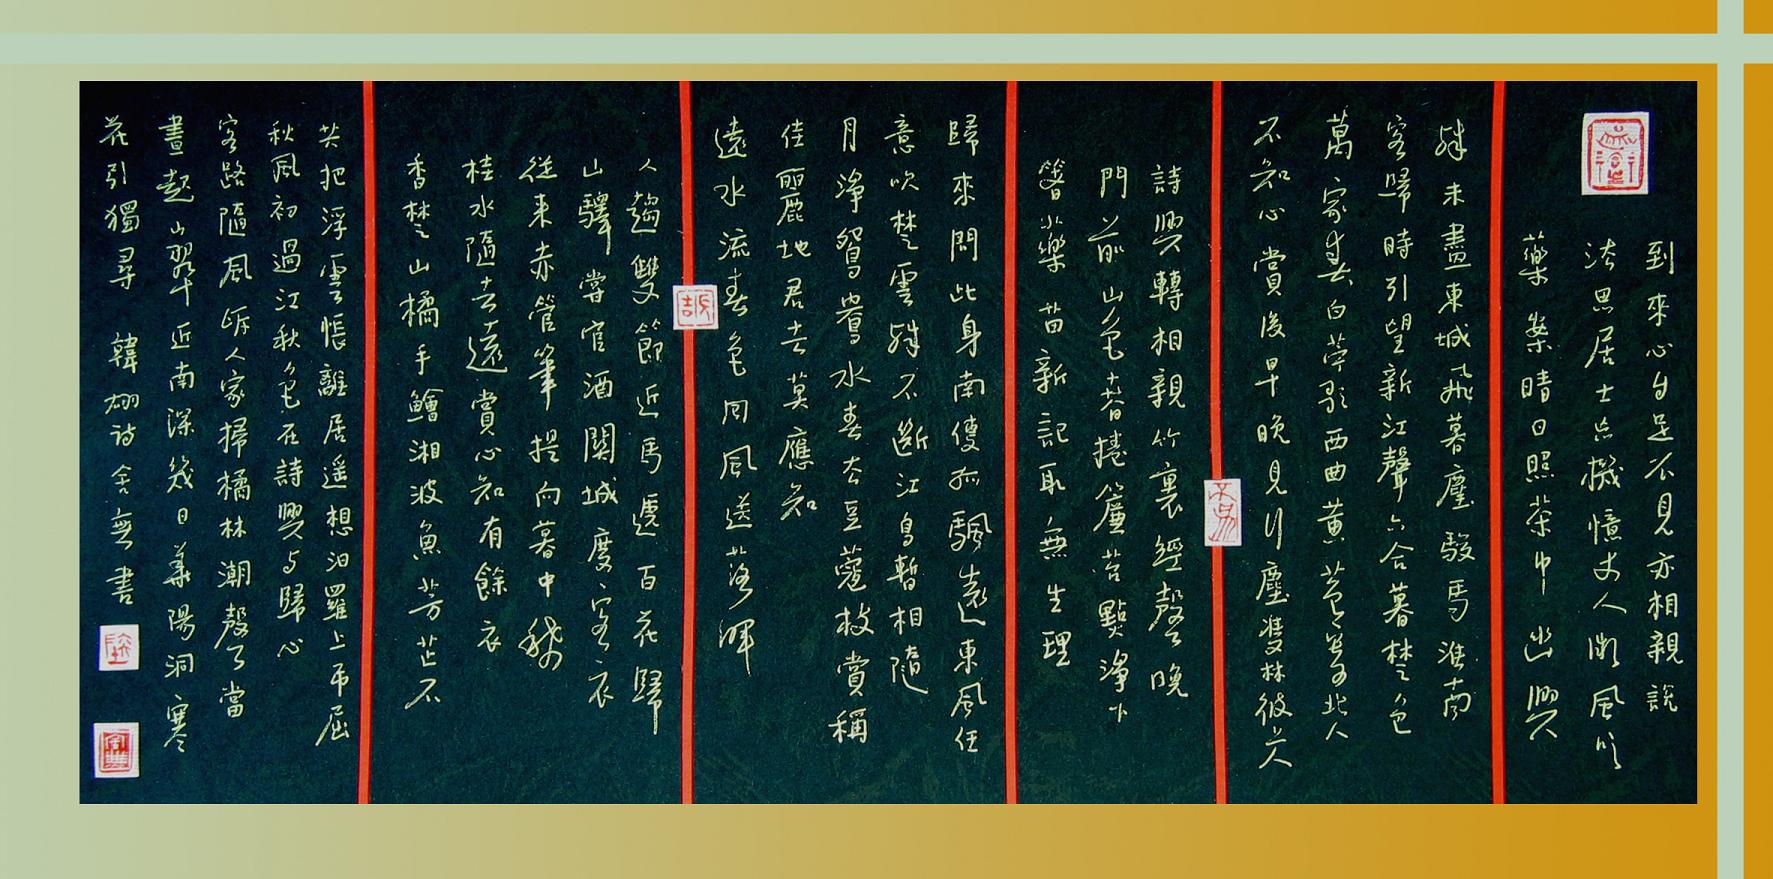 到來心自足不見亦相親說
法思居士忘機憶丈人微風吹
藥案晴日照茶巾 幽興
殊未盡東城飛暮塵駿馬淮南
客歸時引望新江聲六合暮楚色
萬家春白苧歌西曲黃苞寄北人
不知心賞後早晚見行塵雙林彼上人
詩興轉相親竹裏經聲晚
門前山色春捲簾苔點淨下
筯藥苗新記取無生理
歸來問此身南僊孤飄遠東風任
意吹楚雲殊不斷江鳥暫相隨
月淨鴛鴦水春生豆蔻枝賞稱
佳麗地君去莫應知
遠水流春色回風送落暉
人趨雙節近馬遞百花歸
山驛嘗官酒關城度客衣
從來赤管筆提向暮中
桂水隨去遠賞心知有餘衣
香楚山橘手鱠湘波魚芳芷不
共把浮雲悵離居遥想汨羅上弔屈
秋風初過江秋色在詩興與歸心
客路隨風訴人家掃橘林潮聲當
晝起山翠近南深幾日華陽洞寒
花引獨尋 韓翃詩 舍無書